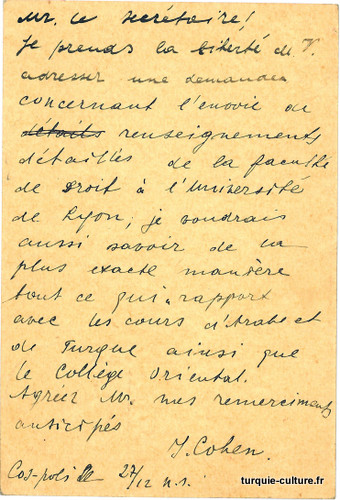 Mr. le secrétaire!
Je prends la liberté de V.
adresser une demandea
concernant l'envoie de
détails renseignements
détaillés de la faculté
de Droit à l'Université
de Lyon; je voudrais
aussi savoir de la
plus exacte manière
tout ce qui a rapport
avec les cours d'Arabe et
de Turque ainsi que
le Collège Oriental.
Agréez Mr. mes remerciments
anticipés
J. Cohen.
Cos-poli 27/12 n.s.
turquie-culture.fr